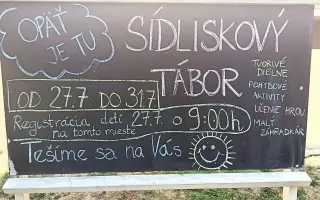 OPÄŤ
JE TU
SÍDLISKOVÝ
TÁBOR
OD 27.7 DO 31.7
Registrácia detí 27.7. o 9:00h
na tomto mieste
Tešíme sa na Vás
TVORIVÉ
DIELNE
POHYBOVÉ
AKTIVITY
UČENIE HROU
MALÝ
ZÁHRADKÁR